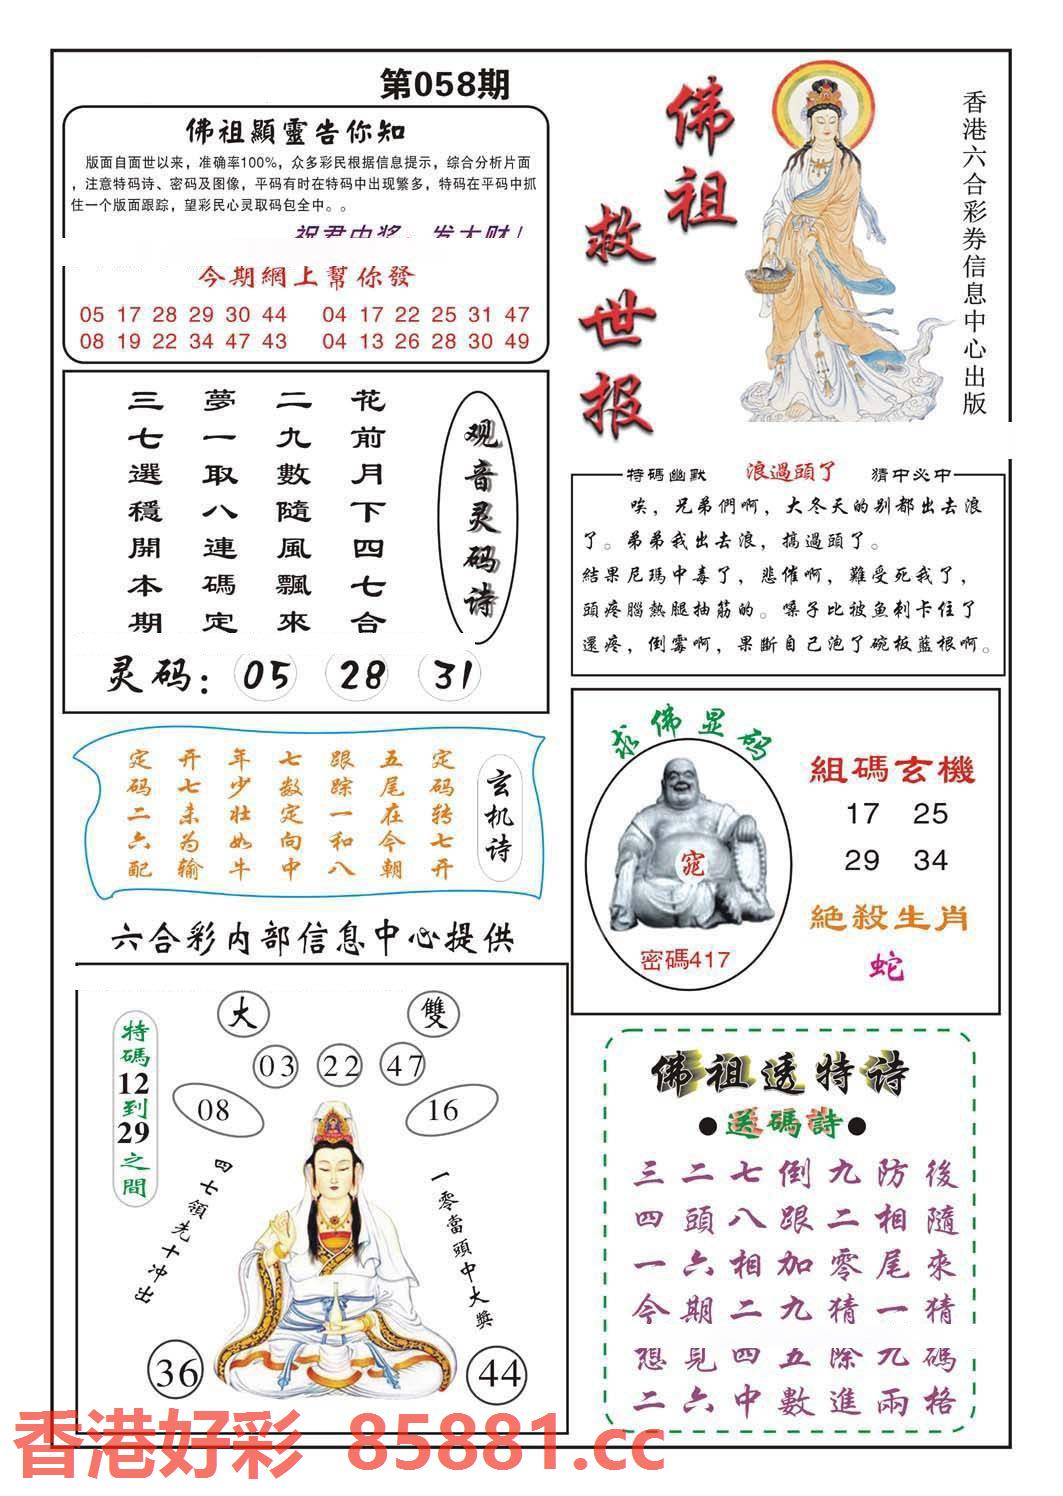 第058期
佛祖顯靈告你知
版面自面世以来，准确率100%，众多彩民根据信息提示，综合分析片面
，注意特码诗、密码及图像，平码有时在特码中出现繁多，特码在平码中抓
住一个版面跟踪，望彩民心灵取码包全中。。
祝君中奖，发大财！
今期網上幫你發
05 17 28 29 30 44 04 17 22 25 31 47
08 19 22 34 47 43 04 13 26 28 30 49
佛祖
救世报
香港六合彩券信息中心出版
观音灵码诗
花前月下四七合
二九數隨風飄來
夢一取八連碼定
三七選穩開本期
灵码：05 28 31
特碼幽默 浪過頭了 猜中必中
唉，兄弟們啊，大冬天的别都出去浪
了。弟弟我出去浪，搞過頭了。
結果尼瑪中毒了，悲催啊，難受死我了，
頭疼腦熱腿抽筋的。嗓子比被魚刺卡住了
還疼，倒霉啊，果斷自己泡了碗板藍根啊。
玄机诗
定码转七开
五尾在今朝
跟踪一和八
七数定向中
年少壮如牛
开七未为输
定码二六配
求佛显码
窕
密碼417
組碼玄機
17 25
29 34
絕殺生肖
蛇
六合彩内部信息中心提供
大 雙
03 22 47
08 16
特碼12到29之間
四七領先十冲出
一零當頭中大獎
36 44
佛祖透特诗
●送碼詩●
三二七倒九防後
四頭八跟二相隨
一六相加零尾來
今期二九猜一猜
想見四五除九碼
二六中數進兩格
香港好彩 85881.cc